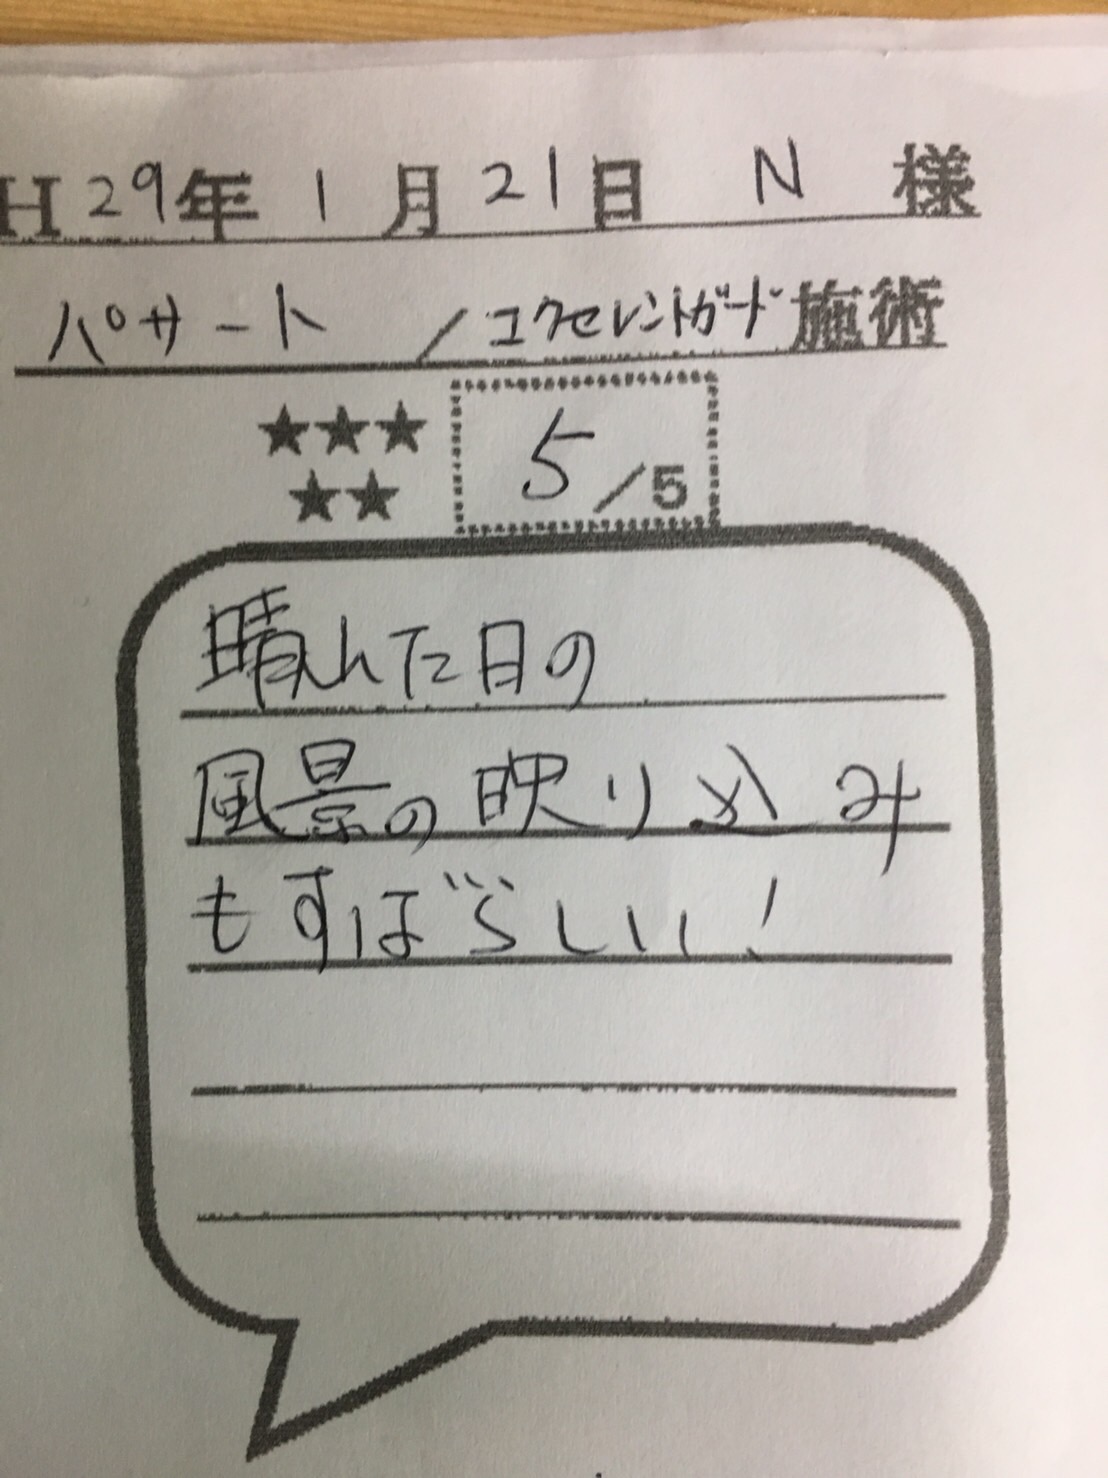 H29年1月21日 N 様
パサート/エクセレントガード施術
★★★
★★
5/5
晴れた日の
風景の映り込み
もすばらしい!